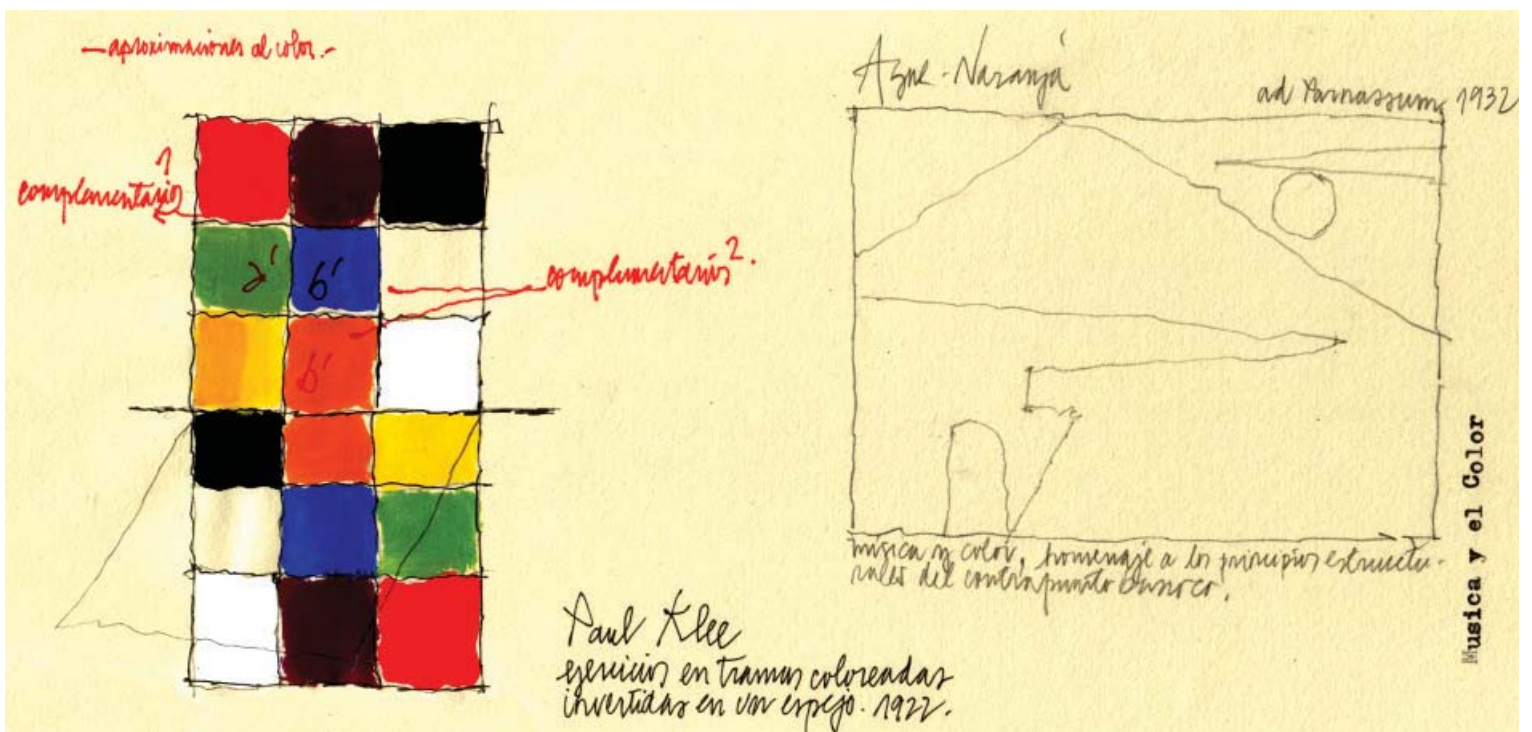 —aproximaciones al color.—
1
complementarios
a'
b'
complementarios 2.
b'
Paul Klee
ejercicios en tramas coloreadas
invertidas en un espejo. 1922.
Azul-Naranja
ad Parnassum 1932
música y color, homenaje a los principios estructu-
rales del contrapunto barroco.
Musica y el Color